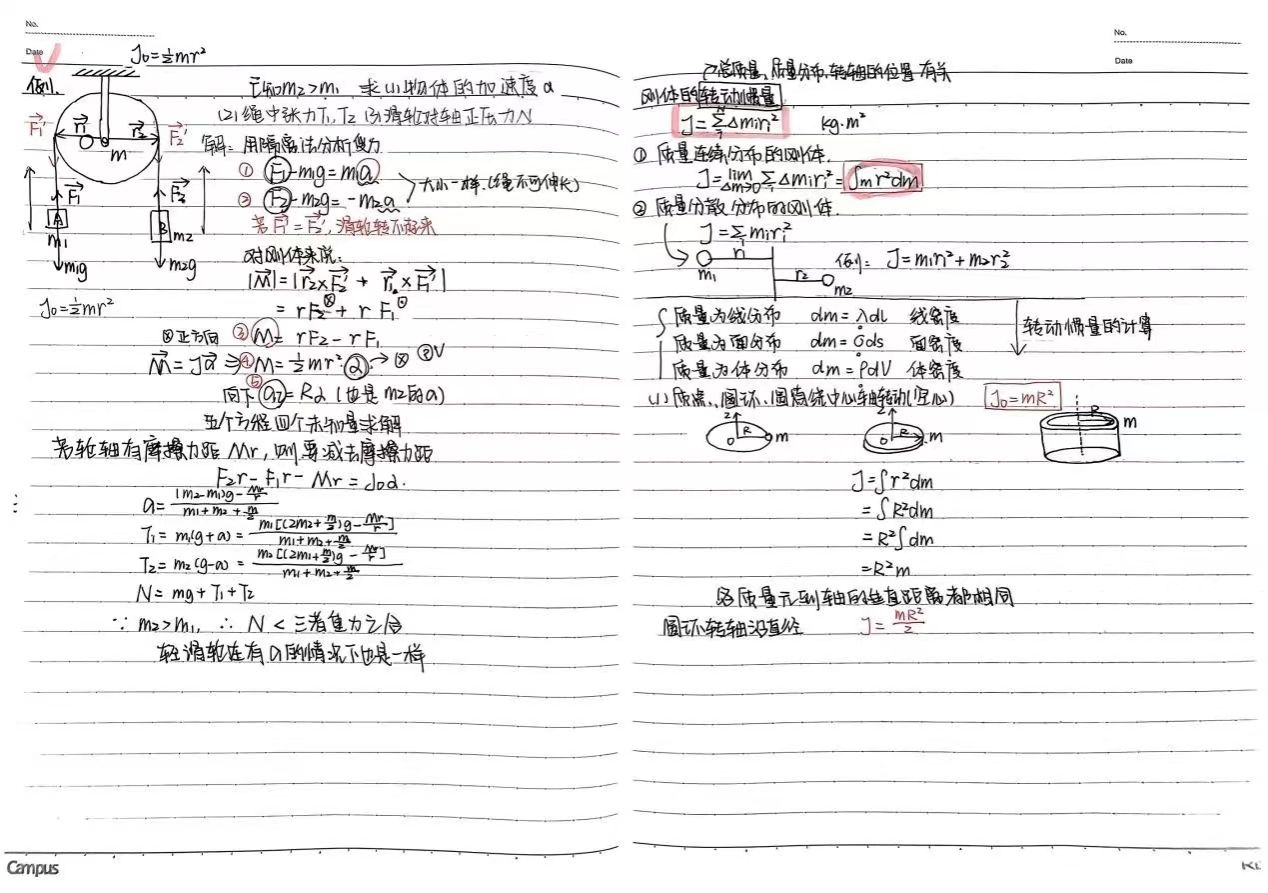 No.
Date
J₀=½mr²
例1.
已知m₂>m₁ 求(1)物体的加速度a
(2)绳中张力T₁,T₂ (3)滑轮对轴正压力N
解: 用隔离法分析受力
① F₁-m₁g=m₁a
② F₂-m₂g=-m₂a
大小一样.(绳不可伸长)
若F₁'=F₂', 滑轮转不起来
F₁'
r₁
r₂
F₂'
O
m
F₁
F₂
A
B
m₁
m₂
m₁g
m₂g
J₀=½mr²
对刚体来说:
|M|=|r₂×F₂' + r₁×F₁'|
= rF₂⊗ + r F₁⊙
⊗正方向 ③ M= rF₂ - rF₁
M=Jα ⇒ ④ M=½mr²α → ⊗
⑤
向下 aτ=Rα (也是m₂的a)
五个方程四个未知量求解
若轮轴有摩擦力距 Mr, 则要减去摩擦力距
F₂r-F₁r-Mr=J₀α.
a=((m₂-m₁)g-Mr/r)/(m₁+m₂+m/2)
T₁=m₁(g+a)=m₁[(2m₂+m/2)g-Mr/r]/(m₁+m₂+m/2)
T₂=m₂(g-a)=m₂[(2m₁+m/2)g-Mr/r]/(m₁+m₂+m/2)
N=mg+T₁+T₂
∵ m₂>m₁, ∴ N<三者重力之合
轻滑轮在有a的情况下也是一样
Campus
No.
Date
总质量, 质量分布, 转轴的位置有关
刚体的转动惯量
J=ΣΔmᵢrᵢ² kg·m²
① 质量连续分布的刚体.
J=lim Δm→0 ΣΔmᵢrᵢ²=∫m r²dm
② 质量分散分布的刚体.
J=Σmᵢrᵢ²
r₁
m₁
r₂
m₂
例: J=m₁r₁²+m₂r₂²
质量为线分布 dm=λdl 线密度
质量为面分布 dm=σds 面密度
质量为体分布 dm=ρdV 体密度
转动惯量的计算
(1) 质点、圆环、圆筒绕中心轴转动(空心) J₀=mR²
Z
O
R
m
Z
O
R
m
R
m
J=∫r²dm
=∫R²dm
=R²∫dm
=R²m
各质量元到轴的垂直距离都相同
圆环转轴沿直径 J=mR²/2